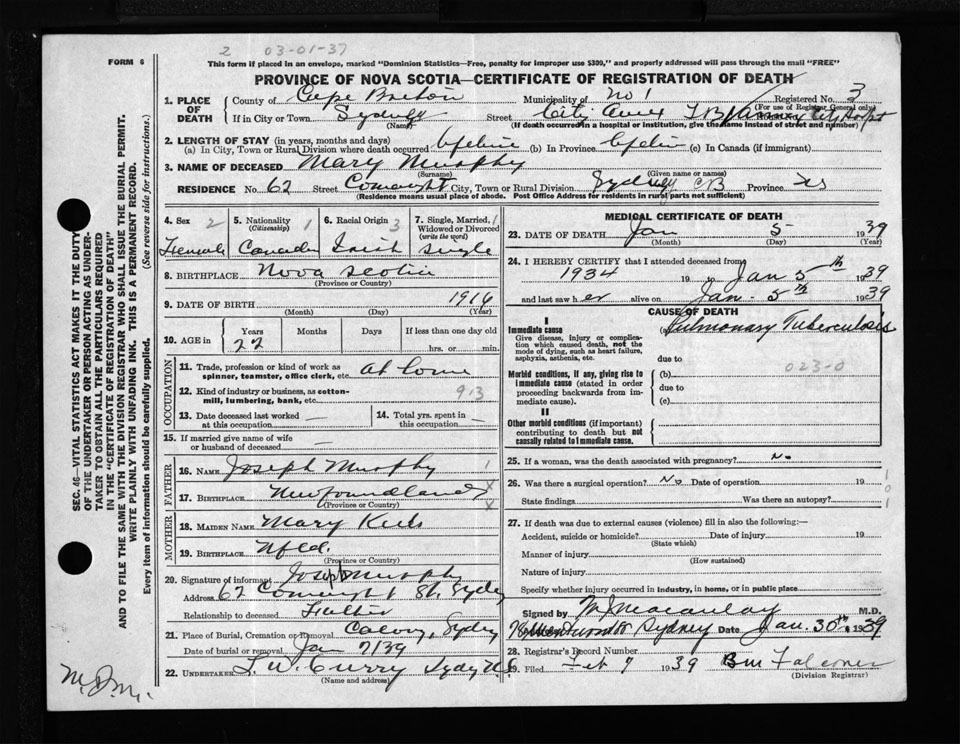 2 03-01-37
FORM 6
This form if placed in an envelope, marked "Dominion Statistics—Free, penalty for improper use $300," and properly addressed will pass through the mail "FREE"
PROVINCE OF NOVA SCOTIA—CERTIFICATE OF REGISTRATION OF DEATH
1. PLACE OF DEATH { County of Cape Breton Municipality of No 1 Registered No. 3
(For use of Registrar General only)
If in City or Town Sydney Street City Hospt
(Name) (If death occurred in a hospital or institution, give the name instead of street and number)
2. LENGTH OF STAY (in years, months and days)
(a) In City, Town or Rural Division where death occurred Lifetime (b) In Province Lifetime (c) In Canada (if immigrant)
3. NAME OF DECEASED Mary Murphy
(Surname) (Given name or names)
RESIDENCE No. 62 Street City, Town or Rural Division Sydney CB Province NS
(Residence means usual place of abode. Post Office Address for residents in rural parts not sufficient)
4. Sex 2 Female
5. Nationality (Citizenship) 1 Canadian
6. Racial Origin 3 Irish
7. Single, Married, Widowed or Divorced (write the word) 1 Single
8. BIRTHPLACE Nova Scotia
(Province or Country)
9. DATE OF BIRTH 1916
(Month) (Day) (Year)
10. AGE in Years 22 Months Days If less than one day old
hrs. or min.
OCCUPATION
11. Trade, profession or kind of work as spinner, teamster, office clerk, etc. at home
12. Kind of industry or business, as cotton-mill, lumbering, bank, etc. 913
13. Date deceased last worked at this occupation
14. Total yrs. spent in this occupation
15. If married give name of wife or husband of deceased
FATHER
16. NAME Joseph Murphy 1
17. BIRTHPLACE Newfoundland X
(Province or Country) X
MOTHER
18. MAIDEN NAME Mary
19. BIRTHPLACE Nfld.
(Province or Country)
20. Signature of informant Joseph Murphy
Address 62 St. Sydney
Relationship to deceased Father
21. Place of Burial, Cremation or Removal Calvary, Sydney
Date of burial or removal Jan 7/39
22. UNDERTAKER L. W. Curry Sydney N S
(Name and address)
MEDICAL CERTIFICATE OF DEATH
23. DATE OF DEATH Jan 5 1939
(Month) (Day) (Year)
24. I HEREBY CERTIFY that I attended deceased from
1934 19 to Jan 5th 1939
and last saw her alive on Jan. 5th 1939
CAUSE OF DEATH
I
Immediate cause (a) Pulmonary Tuberculosis
Give disease, injury or complication which caused death, not the mode of dying, such as heart failure, asphyxia, asthenia, etc.
due to
023-0
Morbid conditions, if any, giving rise to immediate cause (stated in order proceeding backwards from immediate cause).
(b)
due to
(c)
II
Other morbid conditions (if important) contributing to death but not causally related to immediate cause.
25. If a woman, was the death associated with pregnancy? No
26. Was there a surgical operation? No Date of operation 19
State findings Was there an autopsy?
1 0 1
27. If death was due to external causes (violence) fill in also the following:—
Accident, suicide or homicide? Date of injury 19
(State which)
Manner of injury
(How sustained)
Nature of injury
Specify whether injury occurred in industry, in home, or in public place
Signed by M.D.
Sydney Date Jan. 30th, 1939
28. Registrar's Record Number
29. Filed Feb 7 1939
(Division Registrar)
SEC. 46—VITAL STATISTICS ACT MAKES IT THE DUTY
OF THE UNDERTAKER OR PERSON ACTING AS UNDER-
TAKER TO OBTAIN ALL THE PARTICULARS REQUIRED
IN THE "CERTIFICATE OF REGISTRATION OF DEATH"
AND TO FILE THE SAME WITH THE DIVISION REGISTRAR WHO SHALL ISSUE THE BURIAL PERMIT.
WRITE PLAINLY WITH UNFADING INK. THIS IS A PERMANENT RECORD.
Every item of information should be carefully supplied. (See reverse side for instructions.)
M.D.M.